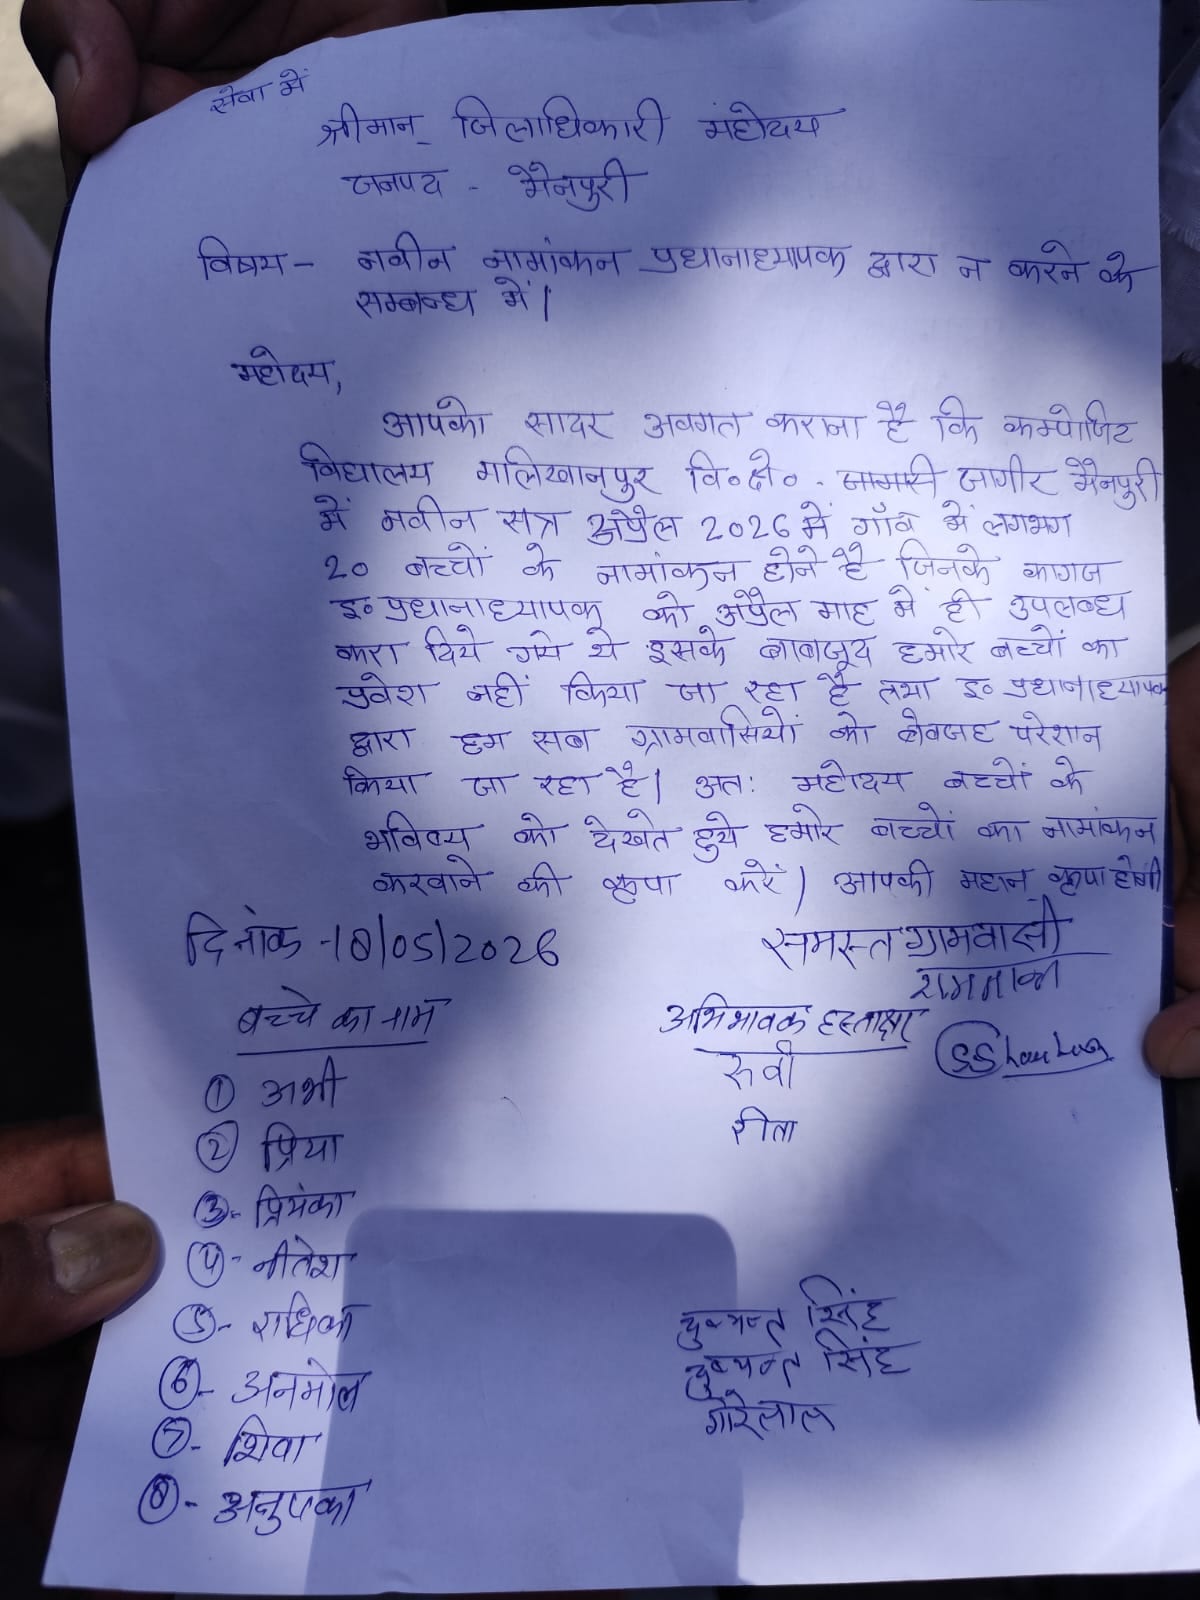 सेवा में
श्रीमान् जिलाधिकारी महोदय
जनपद - मैनपुरी
विषय - नवीन नामांकन प्रधानाध्यापक द्वारा न करने के
सम्बन्ध में।
महोदय,
आपको सादर अवगत कराना है कि कम्पोजिट
विद्यालय मलिखानपुर वि०क्षे० - जागीर मैनपुरी
में नवीन सत्र अप्रैल 2026 में गाँव में लगभग
20 बच्चों के नामांकन होने है जिनके कागज
इ० प्रधानाध्यापक को अप्रैल माह में ही उपलब्ध
करा दिये गये थे इसके बाबजूद हमारे बच्चों का
प्रवेश नहीं किया जा रहा है तथा इ० प्रधानाध्यापक
द्वारा हम सब ग्रामवासियों को बेवजह परेशान
किया जा रहा है। अत: महोदय बच्चों के
भविष्य को देखते हुये हमारे बच्चों का नामांकन
करवाने की कृपा करें। आपकी महान कृपा होगी
दिनांक -18/05/2026
समस्त ग्रामवासी
बच्चे का नाम
अभिभावक हस्ताक्षर
① अभी
रूवी
② प्रिया
रीता
③- प्रियंका
④- नीतेश
⑤- राधिका
दुष्यन्त सिंह
⑥- अनमोल
दुष्यन्त सिंह
⑦- शिवा
गोरेलाल
⑧-